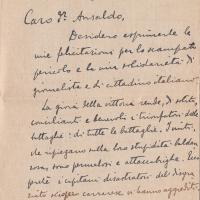 Caro Sr. Ansaldo,
Desidero esprimerle le
mie felicitazioni per lo scampato
pericolo e la mia solidarietà di
giornalista e di cittadino italiano.
La gioia della vittoria rende, di solito,
concilianti e benevoli i trionfatori delle
battaglie: di tutte le battaglie. I vinti,
che ripiegano nella loro stupidità
sono permalosi e attaccabrighe.
perché i capitani disastrosi del
sciopero